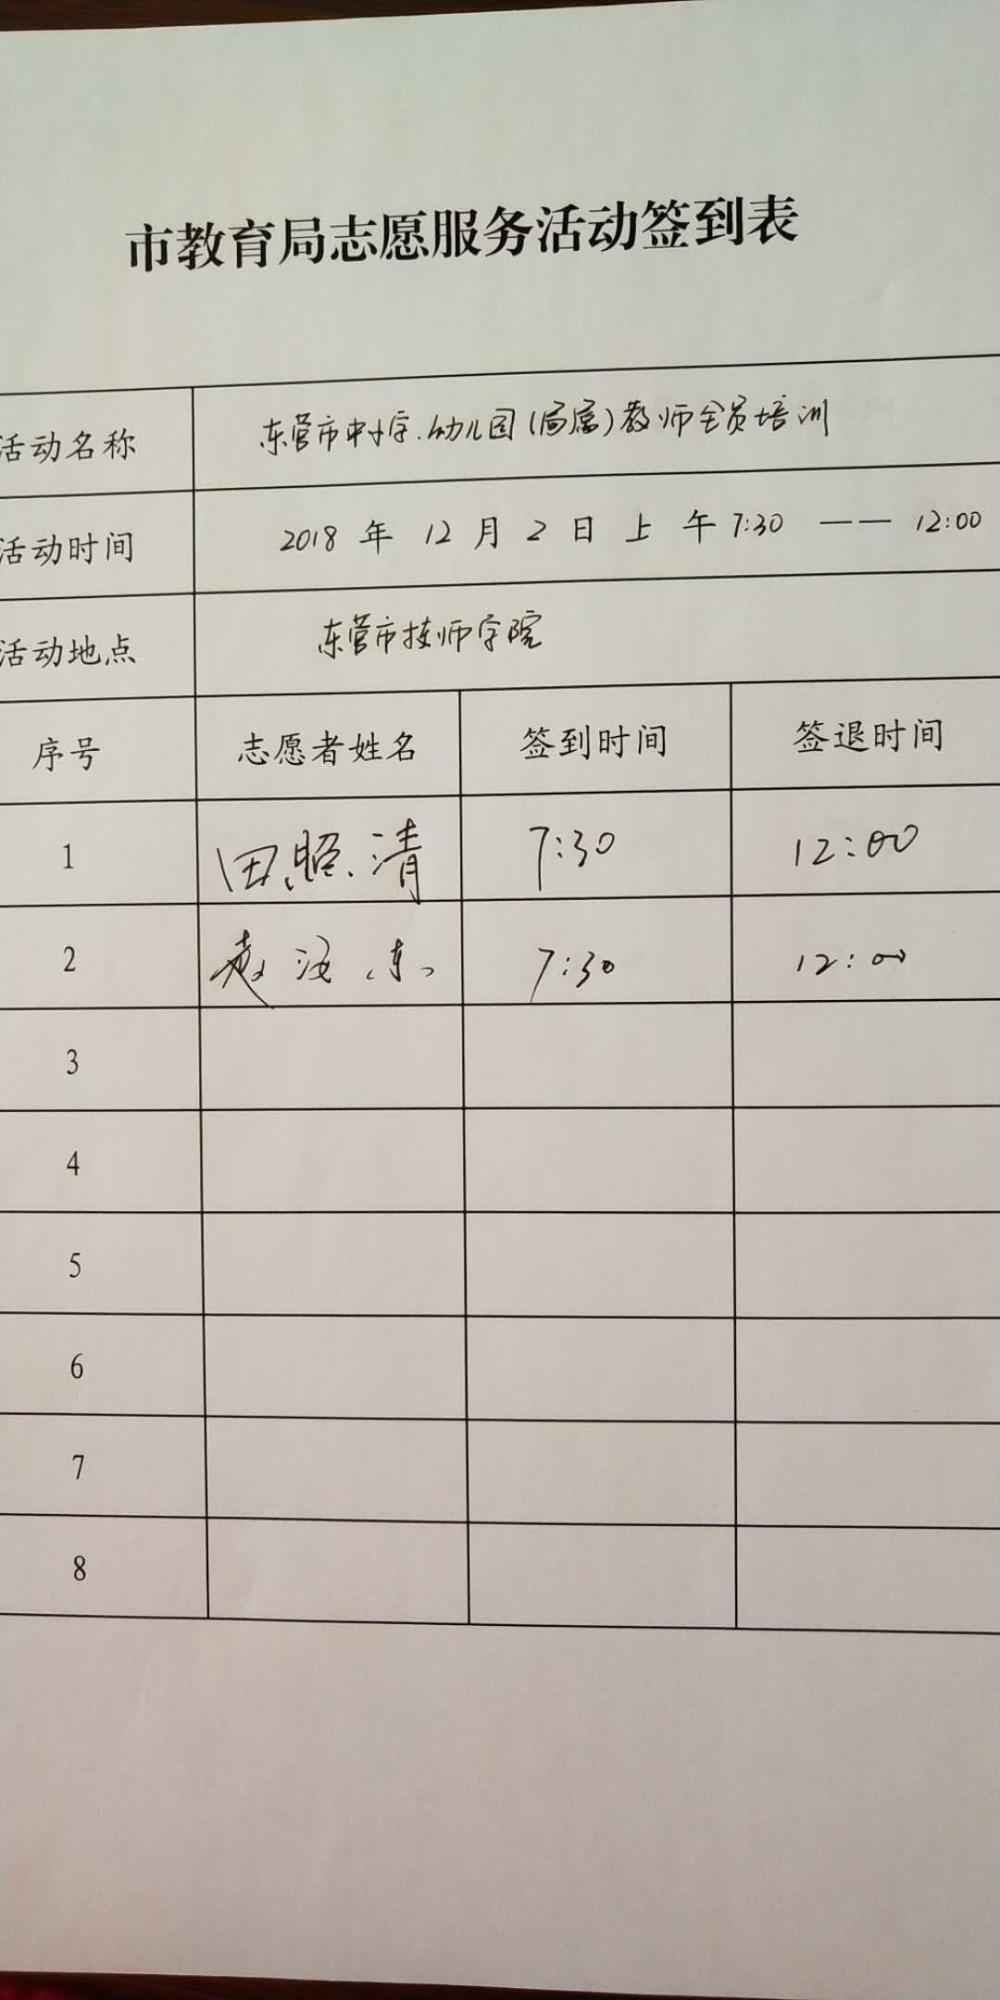 市教育局志愿服务活动签到表
活动名称 东营市中小学.幼儿园(局属)教师全员培训
活动时间 2018 年 12 月 2 日 上 午 7:30 —— 12:00
活动地点 东营市技师学院
序号 志愿者姓名 签到时间 签退时间
1 田照清 7:30 12:00
2 7:30 12:00
3
4
5
6
7
8